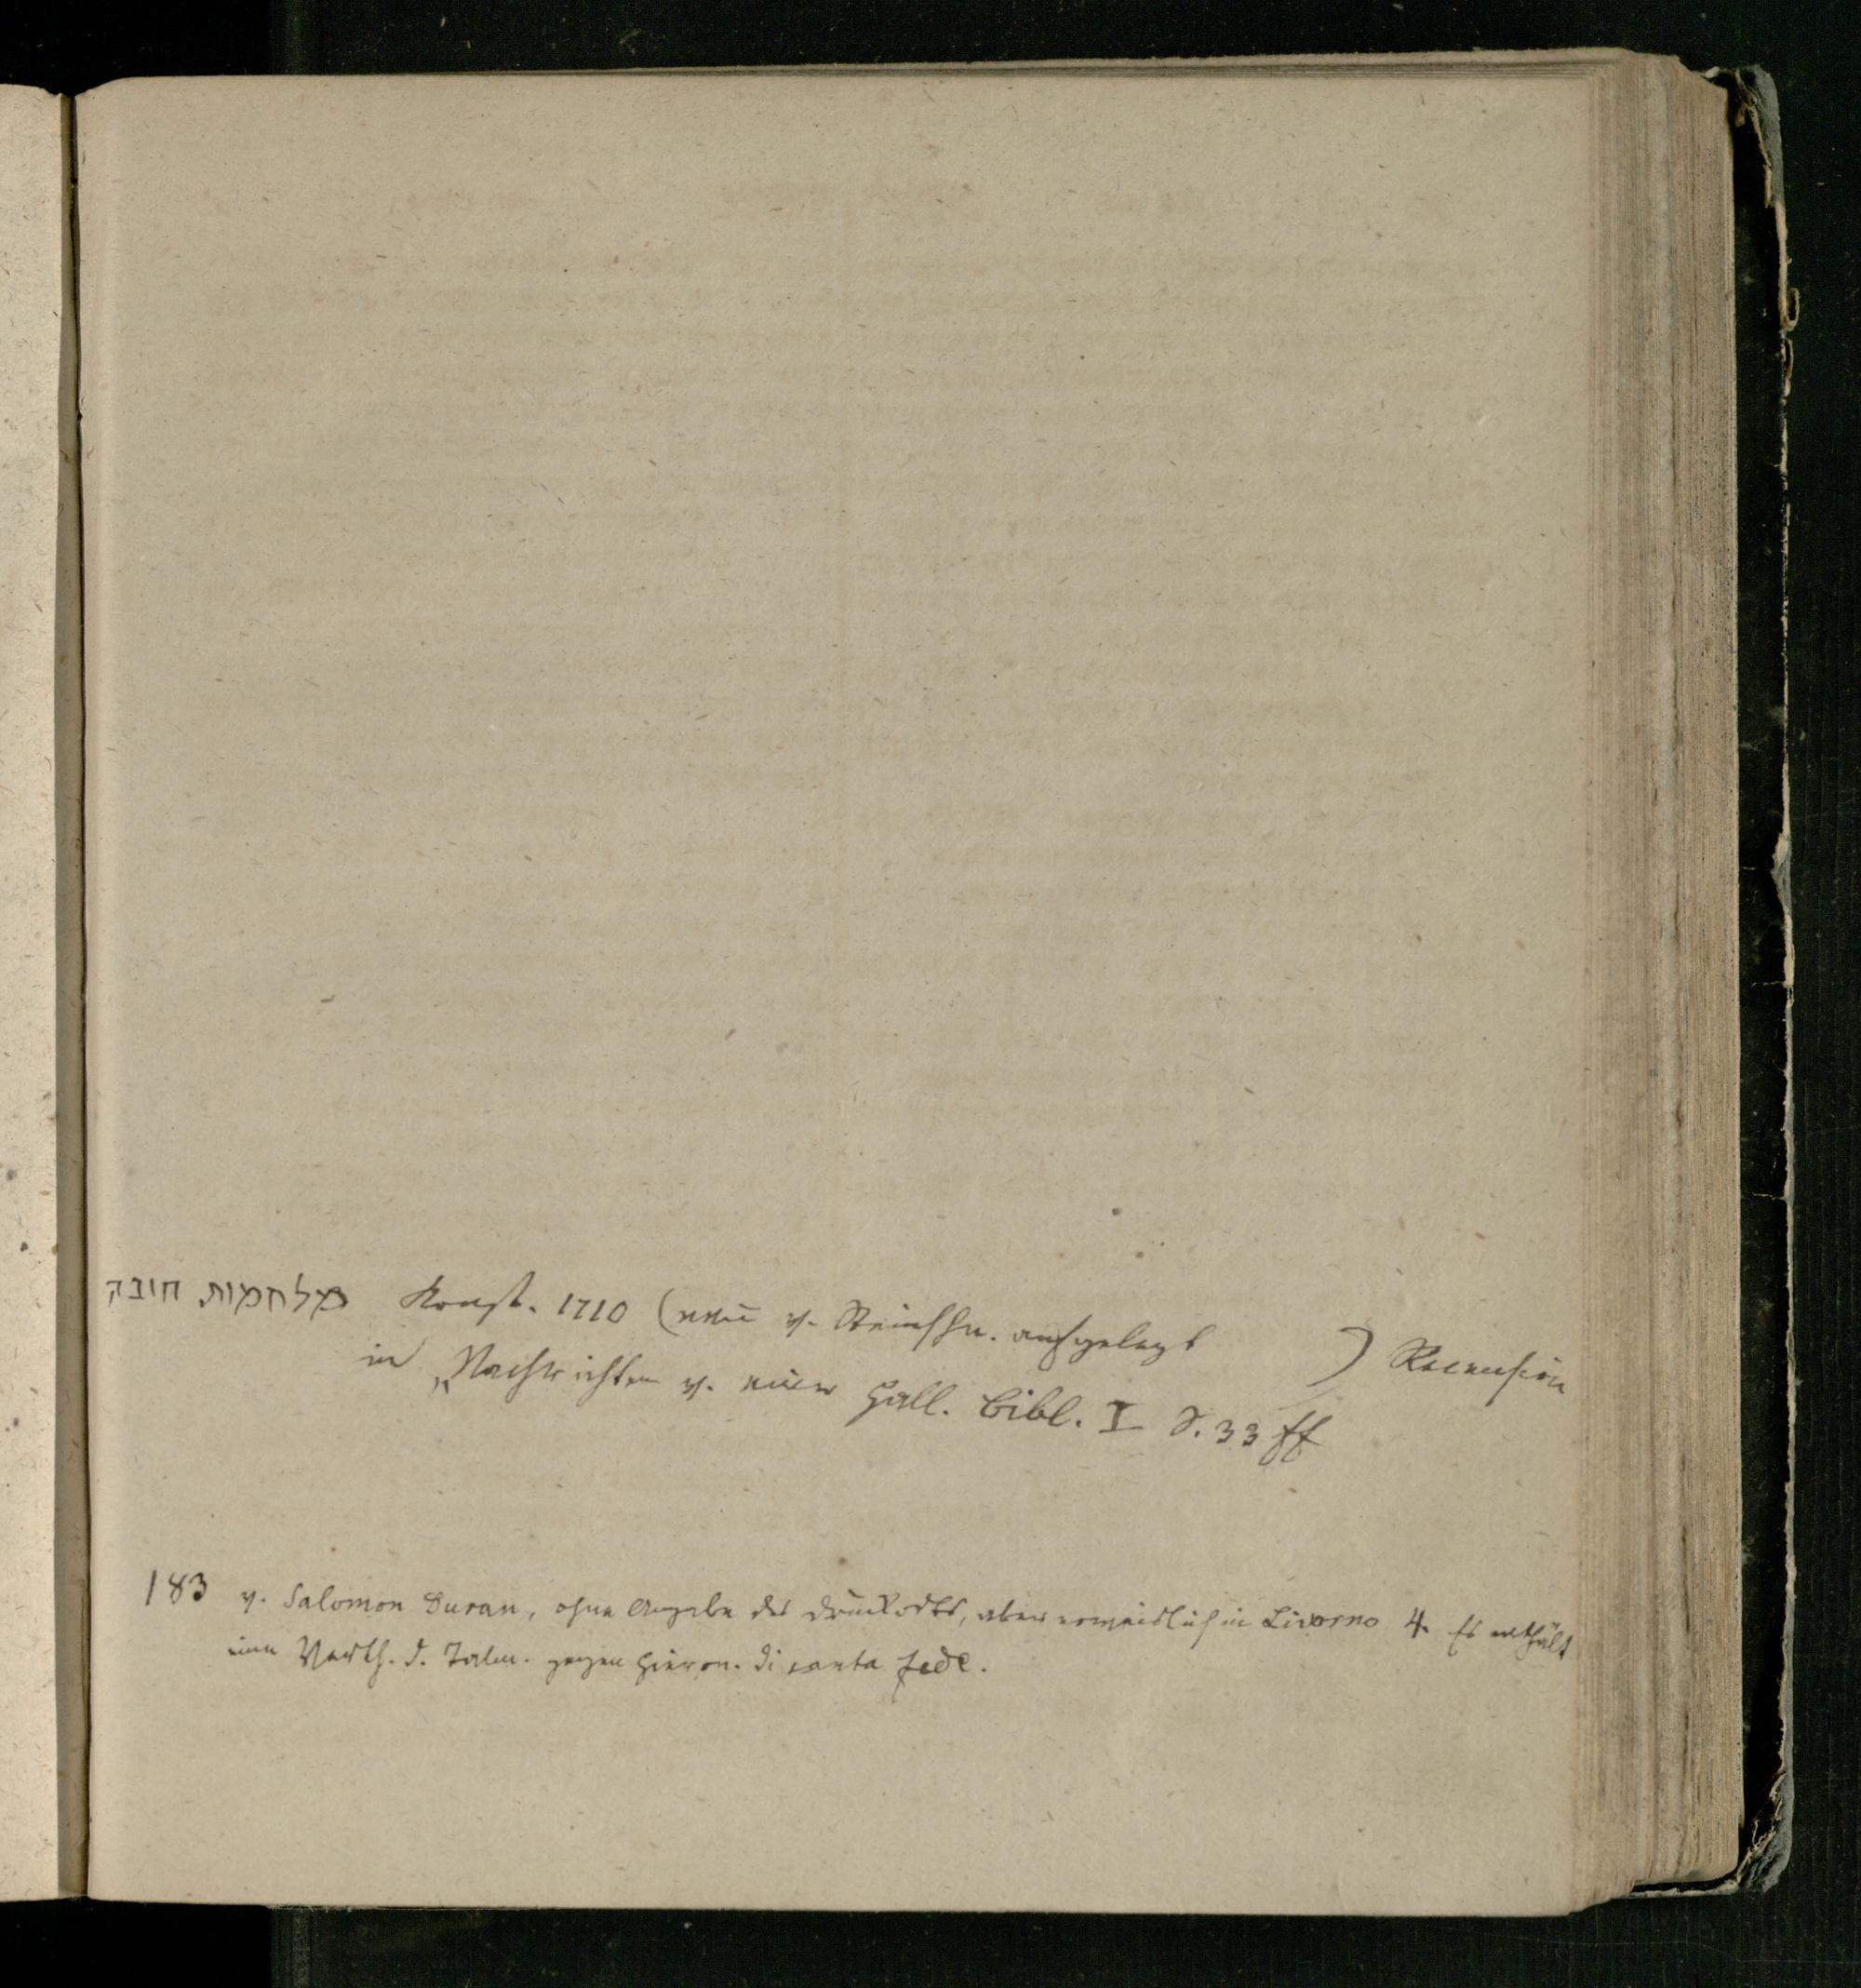 מלחמות חובה Konst. 1710 (neu v. Steinschn. aufgelegt ) Recension
in „Nachrichten v. einer Hall. Bibl. I S. 33 ff
183 v. Salomon Duran, ohne Angabe des Druckorts, aber vermuthlich in Livorno 4. Es enthält
eine Verth. d. Talm. gegen Hieron. di santa fede.